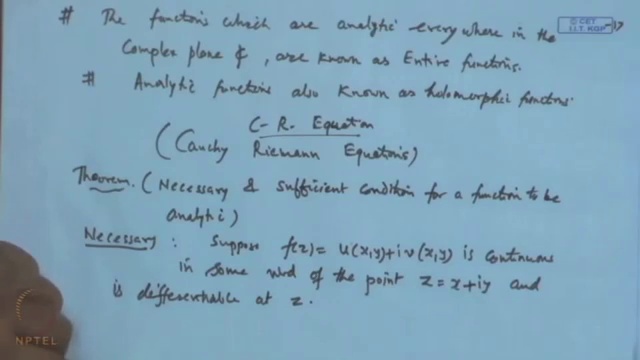 # The functions which are analytic everywhere in the
Complex plane ₵, are known as Entire functions.
# Analytic functions also known as holomorphic functions.
C-R. Equation
(Cauchy Riemann Equations)
Theorem. (Necessary & sufficient condition for a function to be
analytic)
Necessary : Suppose f(z) = u(x,y)+iv(x,y) is continuous
in some nbd of the point z = x+iy and
is differentiable at z.
© CET
I.I.T. KGP
NPTEL